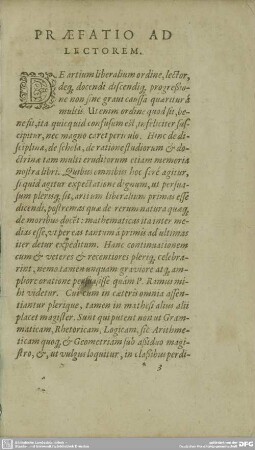 PRÆFATIO AD
LECTOREM.
DE artium liberalium ordine, lector,
deq́; docendi discendiq́; progressio-
ne non sine grani caussa quæritur à
multis. Ut enim ordine quod sit, be-
ne sit, ita quicquid confusum est, infeliciter sus-
cipitur, nec magno caret periculo. Hinc de di-
sciplina, de schola, de ratione studiorum &
doctrina tam multi eruditorum etiam memoria
nostra libri. Quibus omnibus hoc ferè agitur,
si quid agitur expectatione dignum, ut persua-
sum plerisq́; sit, artium liberalium primas esse
dicendi, postremas qua de rerum natura quaq́;
de moribus docent: mathematicas ita inter me-
dias esse, ut per eas tantum à primis ad ultimas
iter detur expeditum. Hanc continuationem
cum & veteres & recentiores plerisq́; celebra-
rint, nemo tamen unquam graviore atq́; am-
pliore oratione persuasisse quàm P. Ramus mi-
hi videtur. Cui cum in cæteris omnia assen-
tiantur pleriq́ue, tamen in mathesi alius alii
placet magister. Sunt qui putent non ut Gram-
maticam, Rhetoricam, Logicam, sic Arithme-
ticam quoq́; & Geometriam sub assiduo magi-
stro, &, ut vulgus loquitur, in classibus perdi-
3